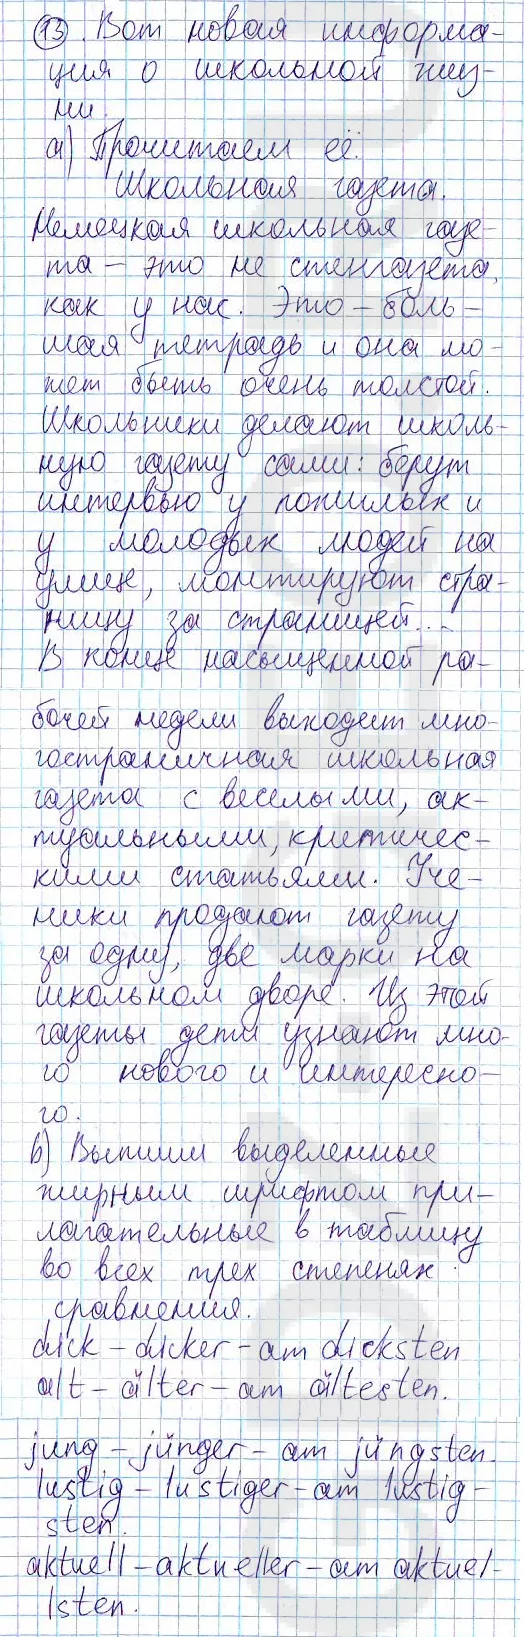 13. Вот новая информа-
ция о школьной жиз-
ни.
а) Прочитаем её.
Школьная газета.
Немецкая школьная газе-
та – это не стенгазета,
как у нас. Это – боль-
шая тетрадь и она мо-
жет быть очень толстой.
Школьники делают школь-
ную газету сами: берут
интервью у пожилых и
у молодых людей на
улице, монтируют стра-
ницу за страницей...
В конце насыщенной ра-
бочей недели выходит мно-
гостраничная школьная
газета с веселыми, ак-
туальными, критичес-
кими статьями. Уче-
ники продают газету
за одну, две марки на
школьном дворе. Из этой
газеты дети узнают мно-
го нового и интересно-
го.
b) Выпиши выделенные
жирным шрифтом при-
лагательные в таблицу
во всех трех степенях
сравнения.
dick – dicker – am dicksten
alt – älter – am ältesten.
jung – jünger – am jüngsten.
lustig – lustiger – am lustig-
sten.
aktuell – aktueller – am aktuel-
lsten.